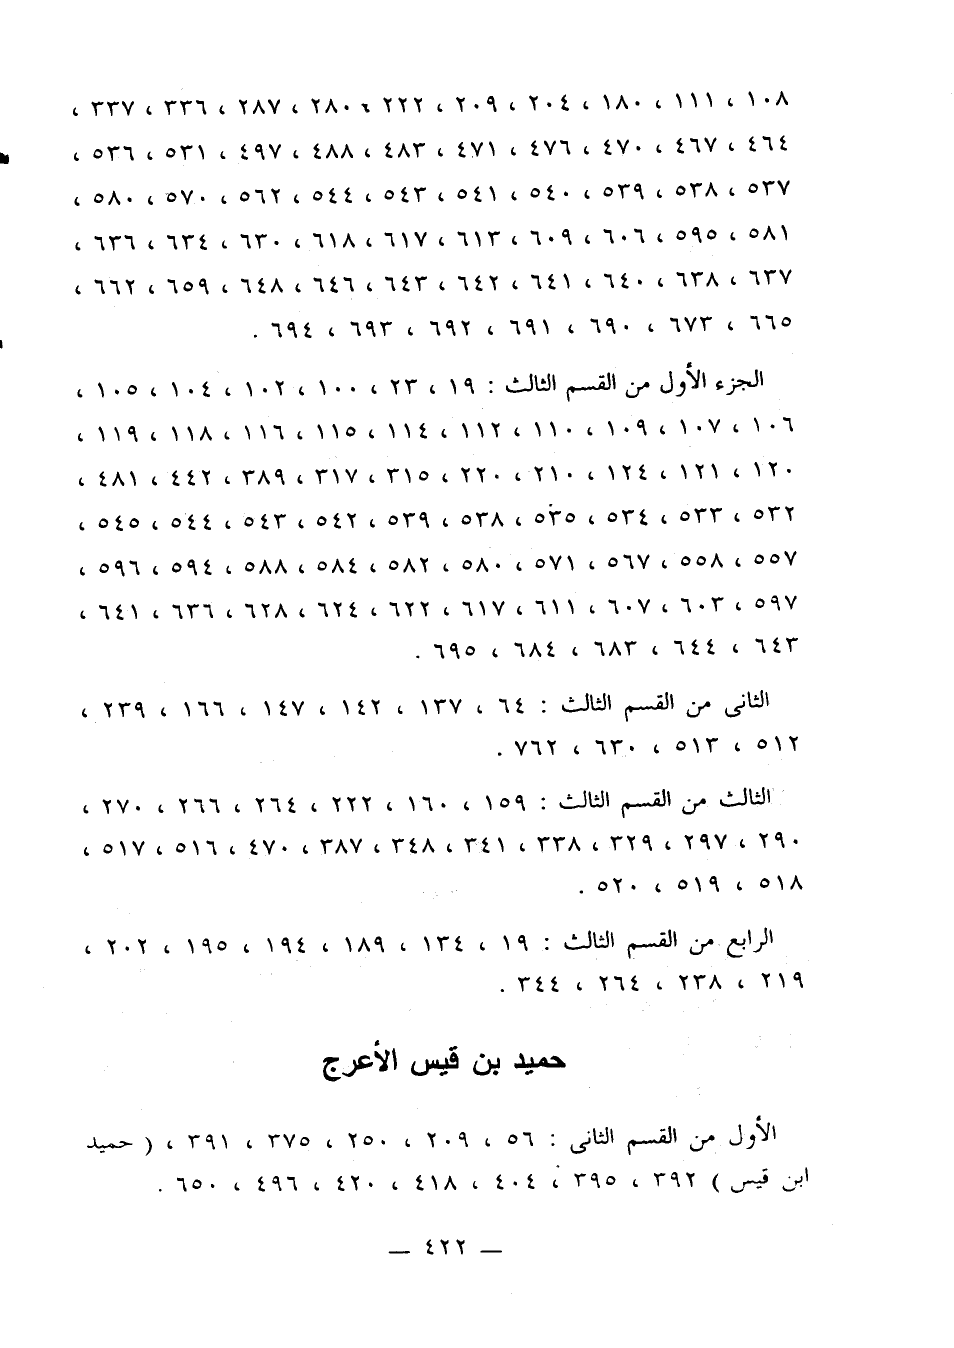 ١٠٨ ، ١١١ ، ١٨٠ ، ٢٠٤ ، ٢٠٩ ، ٢٢٢ ، ٢٨٠ ، ٢٨٧ ، ٣٣٦ ، ٣٣٧ ،
٤٦٤ ، ٤٦٧ ، ٤٧٠ ، ٤٧٦ ، ٤٧١ ، ٤٨٣ ، ٤٨٨ ، ٤٩٧ ، ٥٣١ ، ٥٣٦ ،
٥٣٧ ، ٥٣٨ ، ٥٣٩ ، ٥٤٠ ، ٥٤١ ، ٥٤٣ ، ٥٤٤ ، ٥٦٢ ، ٥٧٠ ، ٥٨٠ ،
٥٨١ ، ٥٩٥ ، ٦٠٦ ، ٦٠٩ ، ٦١٣ ، ٦١٧ ، ٦١٨ ، ٦٣٠ ، ٦٣٤ ، ٦٣٦ ،
٦٣٧ ، ٦٣٨ ، ٦٤٠ ، ٦٤١ ، ٦٤٢ ، ٦٤٣ ، ٦٤٦ ، ٦٤٨ ، ٦٥٩ ، ٦٦٢ ،
٦٦٥ ، ٦٧٣ ، ٦٩٠ ، ٦٩١ ، ٦٩٢ ، ٦٩٣ ، ٦٩٤ .
الجزء الأول من القسم الثالث : ١٩ ، ٢٣ ، ١٠٠ ، ١٠٢ ، ١٠٤ ، ١٠٥ ،
١٠٦ ، ١٠٧ ، ١٠٩ ، ١١٠ ، ١١٢ ، ١١٤ ، ١١٥ ، ١١٦ ، ١١٨ ، ١١٩ ،
١٢٠ ، ١٢١ ، ١٢٤ ، ٢١٠ ، ٢٢٠ ، ٣١٥ ، ٣١٧ ، ٣٨٩ ، ٤٤٢ ، ٤٨١ ،
٥٣٢ ، ٥٣٣ ، ٥٣٤ ، ٥٣٥ ، ٥٣٨ ، ٥٣٩ ، ٥٤٢ ، ٥٤٣ ، ٥٤٤ ، ٥٤٥ ،
٥٥٧ ، ٥٥٨ ، ٥٦٧ ، ٥٧١ ، ٥٨٠ ، ٥٨٢ ، ٥٨٤ ، ٥٨٨ ، ٥٩٤ ، ٥٩٦ ،
٥٩٧ ، ٦٠٣ ، ٦٠٧ ، ٦١١ ، ٦١٧ ، ٦٢٢ ، ٦٢٤ ، ٦٢٨ ، ٦٣٦ ، ٦٤١ ،
٦٤٣ ، ٦٤٤ ، ٦٨٣ ، ٦٨٤ ، ٦٩٥ .
الثانى من القسم الثالث : ٦٤ ، ١٣٧ ، ١٤٢ ، ١٤٧ ، ١٦٦ ، ٢٣٩ ،
٥١٢ ، ٥١٣ ، ٦٣٠ ، ٧٦٢ .
الثالث من القسم الثالث : ١٥٩ ، ١٦٠ ، ٢٢٢ ، ٢٦٤ ، ٢٦٦ ، ٢٧٠ ،
٢٩٠ ، ٢٩٧ ، ٣٢٩ ، ٣٣٨ ، ٣٤١ ، ٣٤٨ ، ٣٨٧ ، ٤٧٠ ، ٥١٦ ، ٥١٧ ،
٥١٨ ، ٥١٩ ، ٥٢٠ .
الرابع من القسم الثالث : ١٩ ، ١٣٤ ، ١٨٩ ، ١٩٤ ، ١٩٥ ، ٢٠٢ ،
٢١٩ ، ٢٣٨ ، ٢٦٤ ، ٣٤٤ .
حميد بن قيس الأعرج
الأول من القسم الثانى : ٥٦ ، ٢٠٩ ، ٢٥٠ ، ٣٧٥ ، ٣٩١ ، ( حميد
ابن قيس ) ٣٩٢ ، ٣٩٥ ، ٤٠٤ ، ٤١٨ ، ٤٢٠ ، ٤٩٦ ، ٦٥٠ .
— ٤٢٢ —